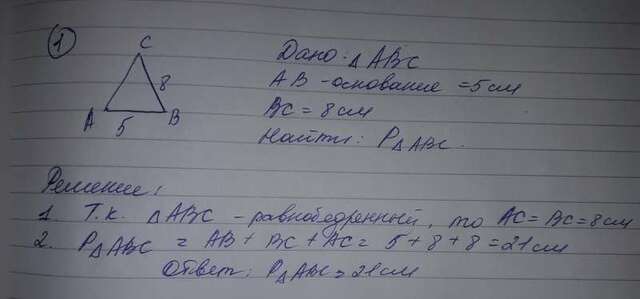 1
C
8
A
5
B
Дано: △ABC
AB - основание = 5 см
BC = 8 см
Найти: P△ABC.
Решение:
1. Т.к. △ABC - равнобедренный, то AC = BC = 8 см
2. P△ABC = AB + BC + AC = 5 + 8 + 8 = 21 см
Ответ: P△ABC = 21 см